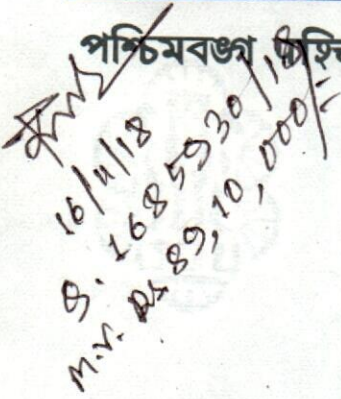 পশ্চিমবঙ্গ
16/11/18
8. 1685930/18
M.V. Rs 89,10,000/=